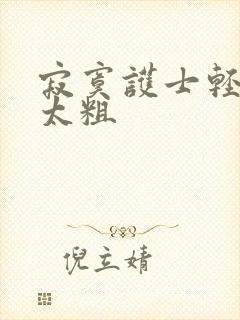 寂寞護士輕
太粗
倪立婧